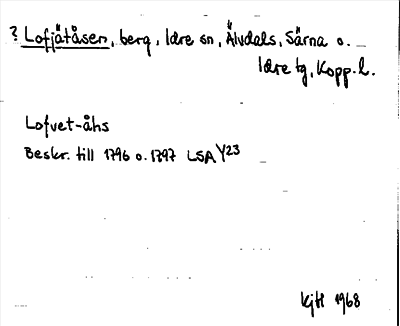 ? Lofjätåsen, berg, Idre sn, Älvdals, Särna o.
Idre tg, Kopp. l.
Lofvet-åhs
Beskr. till 1796 o. 1797 LSA Y23
KjH 1968